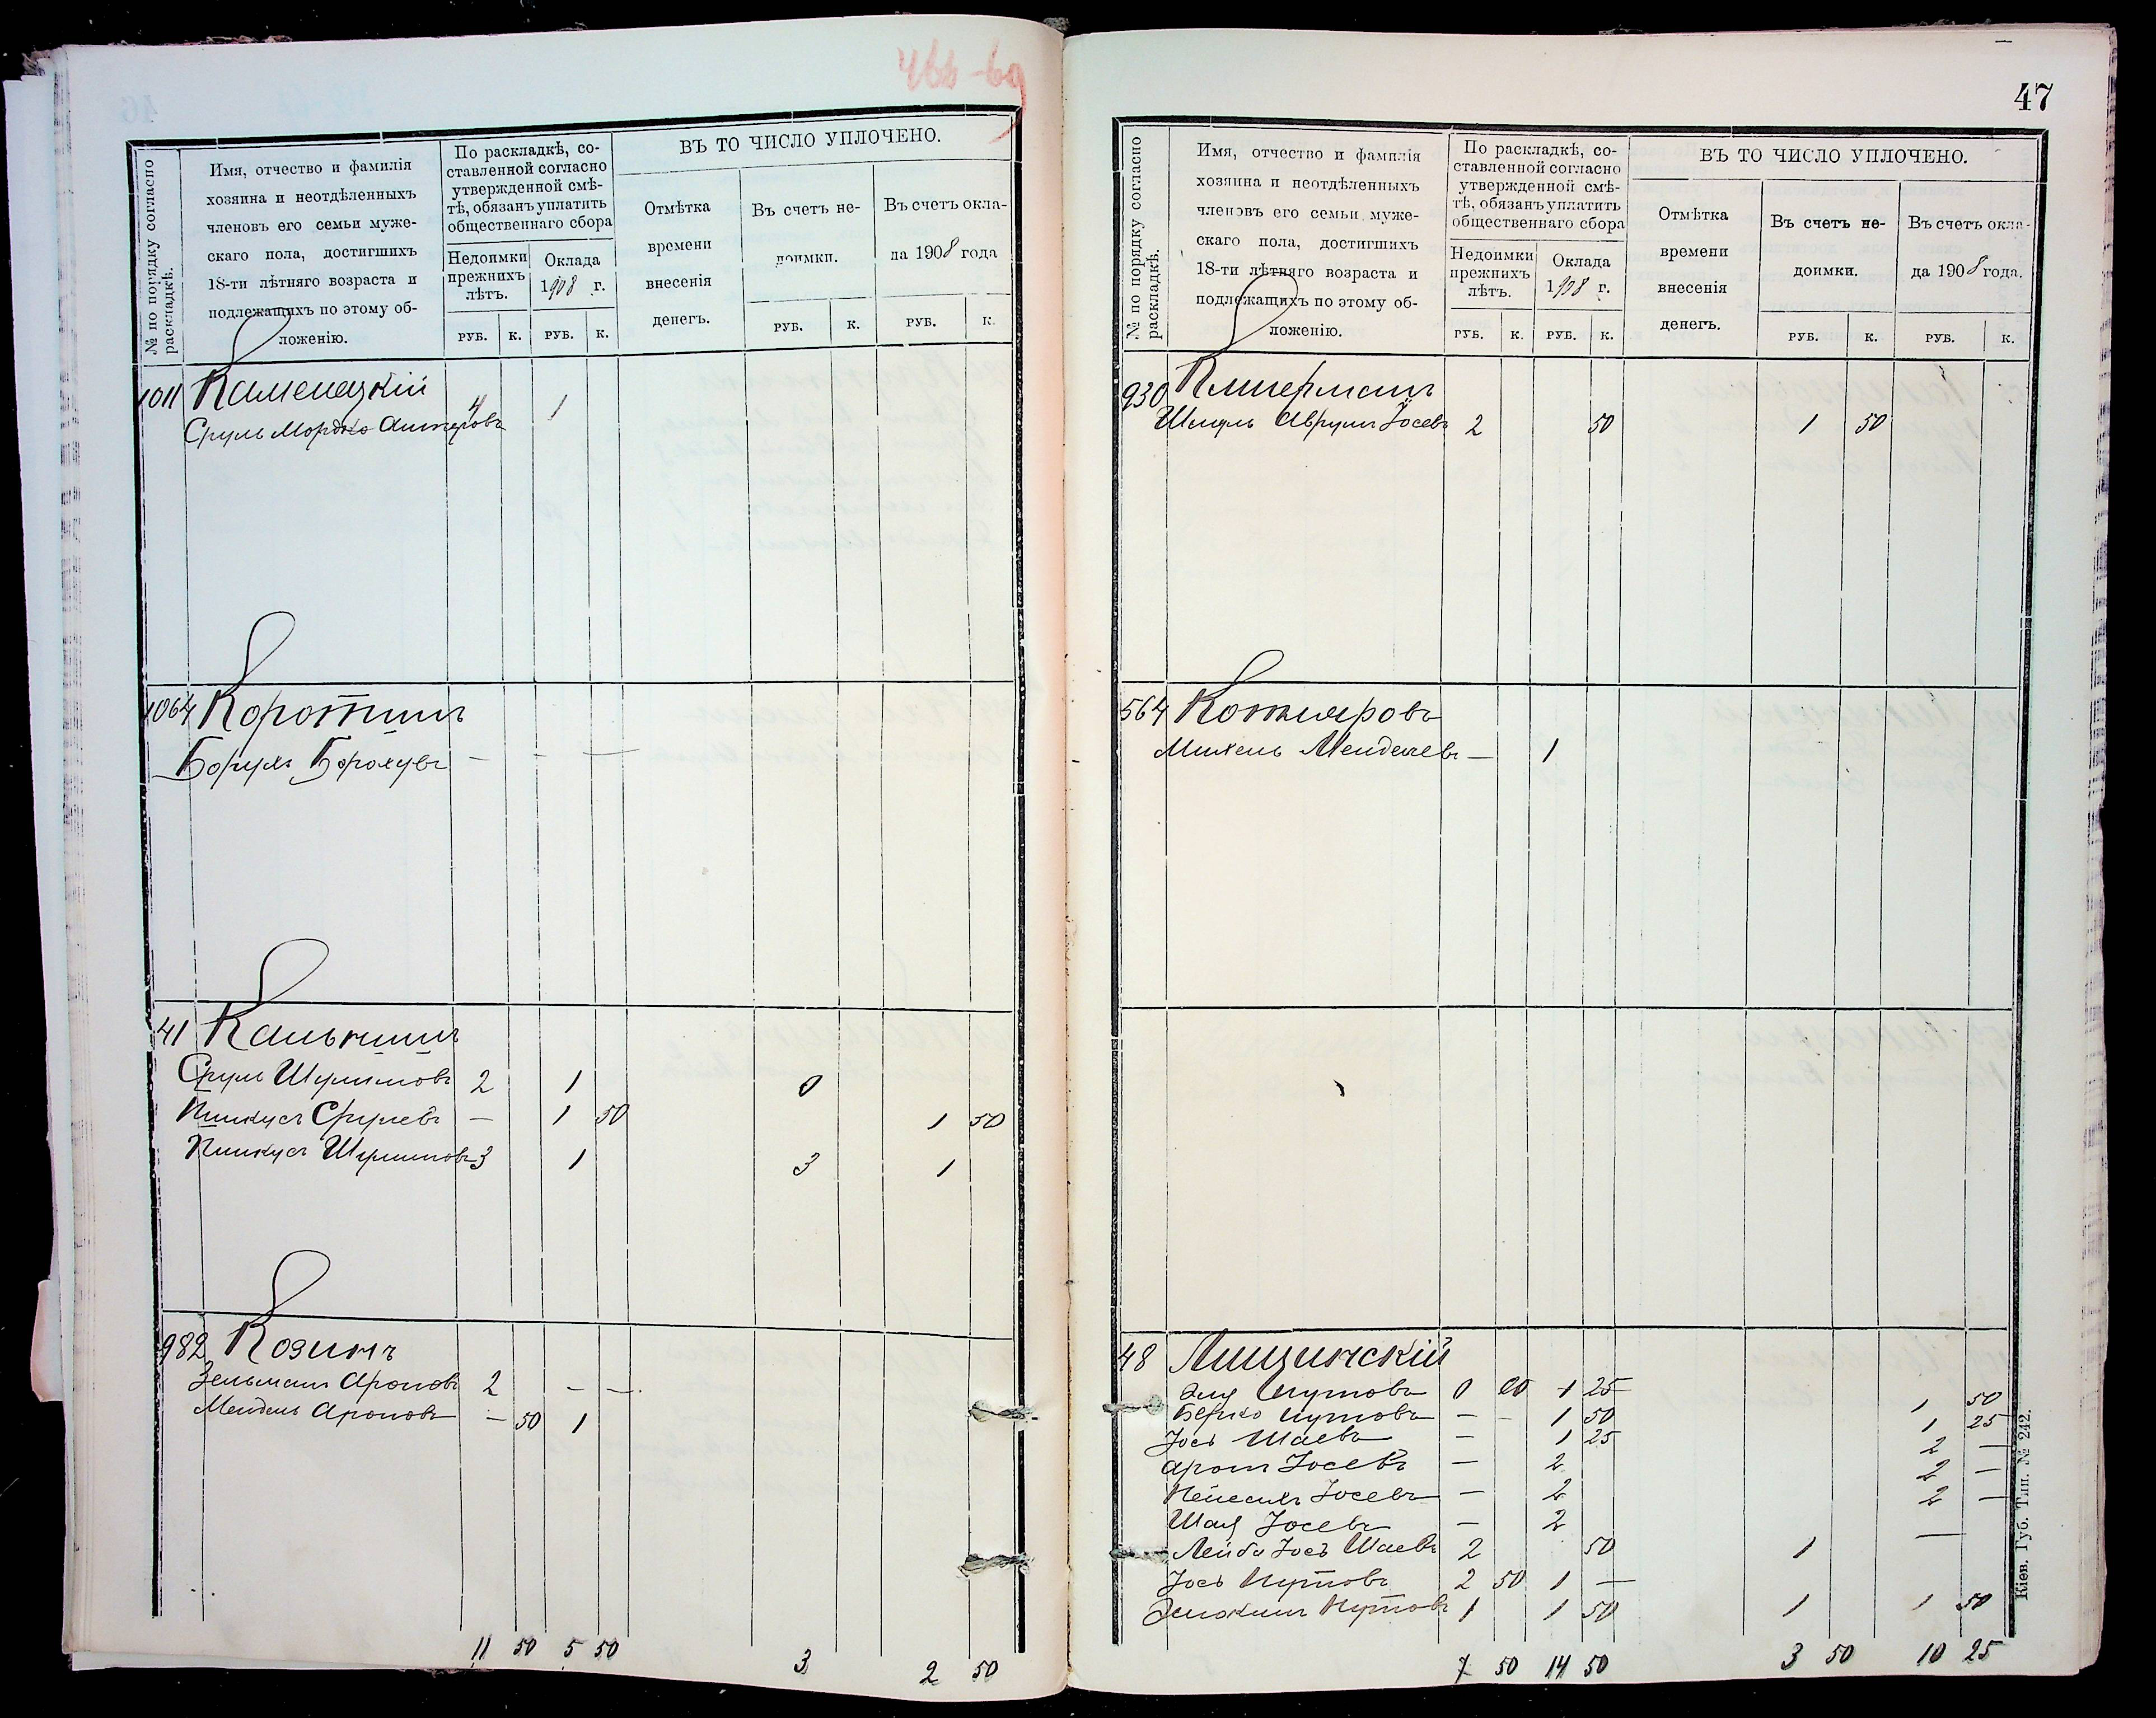 466-69
№ по порядку согласно раскладкѣ.
Имя, отчество и фамилія
хозяина и неотдѣленныхъ
членовъ его семьи муже-
скаго пола, достигшихъ
18-ти лѣтняго возраста и
подлежащихъ по этому об-
ложенію.
По раскладкѣ, со-
ставленной согласно
утвержденной смѣ-
тѣ, обязанъ уплатить
общественнаго сбора
Недоимки
прежнихъ
лѣтъ.
Оклада
1908 г.
РУБ. К. РУБ. К.
ВЪ ТО ЧИСЛО УПЛОЧЕНО.
Отмѣтка
времени
внесенія
денегъ.
Въ счетъ не-
доимки.
РУБ. К.
Въ счетъ окла-
да 1908 года
РУБ. К.
1011 Каменецкій
Сруль Мордко 4 1
1064 Коротинъ
Борухъ Бороховъ — - - —
41 Кальнинъ
Сруль Шулимовъ 2 1 0
Пинкусъ Срулевъ — 1 50 1 50
Пинкусъ Шулимовъ 3 1 3 1
982 Козинъ
Зельманъ Ароновъ 2 — —
Мендель Ароновъ — 50 1
11 50 5 50 3 2 50
47
№ по порядку согласно раскладкѣ.
Имя, отчество и фамилія
хозяина и неотдѣленныхъ
членовъ его семьи муже-
скаго пола, достигшихъ
18-ти лѣтняго возраста и
подлежащихъ по этому об-
ложенію.
По раскладкѣ, со-
ставленной согласно
утвержденной смѣ-
тѣ, обязанъ уплатить
общественнаго сбора
Недоимки
прежнихъ
лѣтъ.
Оклада
1908 г.
РУБ. К. РУБ. К.
ВЪ ТО ЧИСЛО УПЛОЧЕНО.
Отмѣтка
времени
внесенія
денегъ.
Въ счетъ не-
доимки.
РУБ. К.
Въ счетъ окла-
да 1908 года.
РУБ. К.
930 Клигерманъ
Шмуль Аврумъ Іосевъ 2 50 1 50
564 Котляровъ
Михель Менделевъ — 1
48 Лищинскій
1 25 1 50
Берко — - 1 50 1 25
Іось Шаевъ — 1 25 2 —
Аронъ Іосевъ — 2 2 —
Іосевъ — 2 2 —
Шая Іосевъ — 2 —
Лейба Іось Шаевъ 2 50 1
Іось Нутовъ 2 50 1 —
Нутовъ 1 1 50 1 1 50
7 50 14 50 3 50 10 25
Кіев. Губ. Тип. № 242.